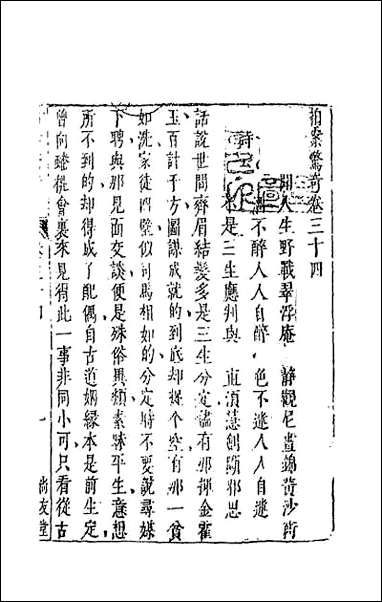 拍案驚奇卷三十四
聞人生野戰翠浮庵　靜觀尼晝錦黃沙衖
不醉人人自醉　色不迷人人自迷
是三生應判與　直須慧劍斷邪思
話說世間齊眉結髮多是三生分定儘有那揮金霍
玉百計千方圖謀成就的到底却捉个空有那一貧
如洗家徒四壁似司馬相如的分定時不要說尋媒
下聘與那見面交談便是殊俗異類素昧平生意想
所不到的却得成了配偶自古道姻緣本是前生定
曾向蟠桃會裏來見得此一事非同小可只看從古
一
尚友堂